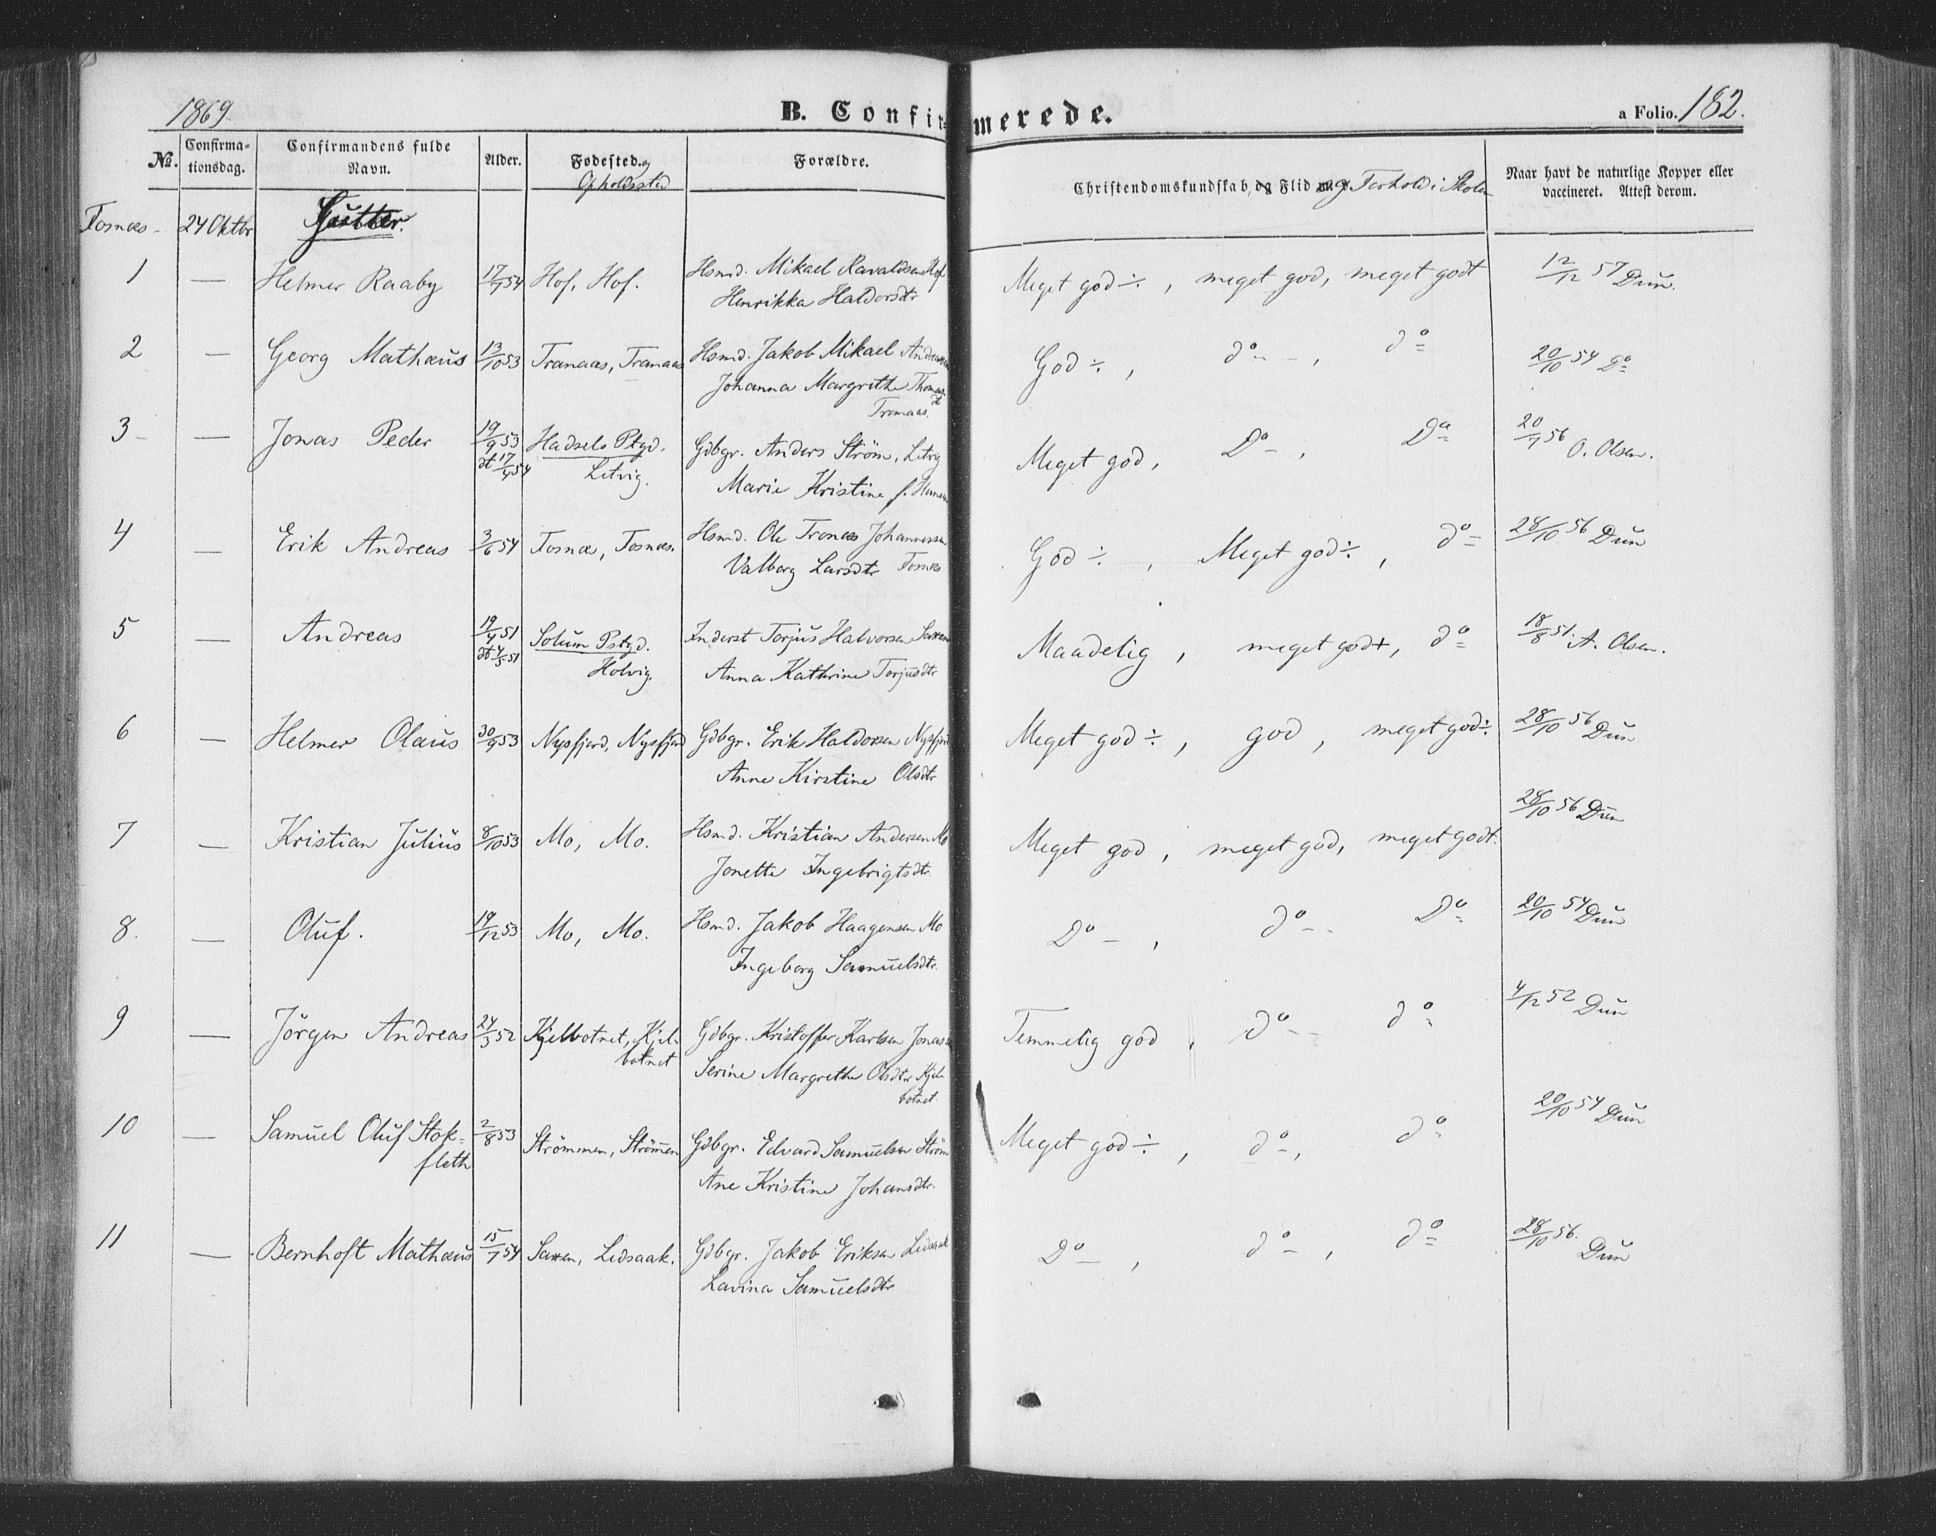 1869.
B. Confirmerede.
a Folio. 182.
№. Confirma-tionsdag. Confirmandens fulde Navn. Alder. Fødested. og Opholdssted Forældre. Christendomskundskab, og Flid og Forhold i Skolen Naar havt de naturlige Kopper eller vaccineret. Attest derom.
Tosnæs - 24 Oktbr Gutter.
1 — Helmer Raaby 17/7 54 Hof, Hof. Hsmd. Mikael Ravaldsen Hof Meget god ÷, meget god, meget godt 12/12 57 Dun.
Henrikka Haldorsdtr
2 — Georg Mathæus 13/10 53 Tranaas, Tranaas Hsmd. Jakob Mikael Andreassen God ÷, do - , do 20/10 54 Do
Johanna Margrithe Thomasdt
Tranaas.
3 - — Jonas Peder 19/9 53 Hadsels Ptgd. Gdbgr. Anders Ström, Letvig Meget god, Do - , Do 20/7 56 O. Olsen.
dt 17/4 54 Letvig. Marie Kristine f.
4 — Erik Andreas 3/6 54 Tosnæs, Tosnæs. Hsmd. Ole Tronæs Johannessen God ÷, Meget god ÷, do 28/10 56 Dun
Valborg Larsdtr Tosnæs
5 — Andreas 19/4 51 Solum Pstgd. Inderst Torjus Halvorsen Saxen Maadelig, meget godt, do 18/8 51. A. Olsen.
dt 4/5 51 Holvig. Anna Kathrine Torjusdtr
6 — Helmer Olaus 30/9 53 Nysfjord, Nysfjord Gdbgr. Erik Haldorsen Nysfjord Meget god ÷, god, meget god ÷ 28/10 56 Dun
Anne Kirstine Olsdtr
7 — Kristian Julius 8/10 53 Mo, Mo. Hsmd. Kristian Andersen Mo Meget god, meget god, meget godt. 28/10 56 Dun
Jonette Ingebrigtsdtr.
8. — Oluf. 19/12 53 Mo, Mo. Hsmd. Jakob Haagensen Mo Do - , do - Do 20/10 54 Dun
Ingeborg Samuelsdtr.
9 — Jörgen Andreas 24/3 52 Kjelbotnet, Kjel- Gdbgr. Kristoffer Karlsen Jonassen Temmelig god, do - do 4/12 52 Dun
botnet Serine Margrethe Olsdtr Kjel-
botnet.
10 — Samuel Oluf Stok- 2/8 53 Strömmen, Strömmen Gdbgr. Edvard Samuelsen Ström Meget god ÷, do -, do 20/10 54 Dun
fleth Ane Kristine Johansdtr.
11 — Bernhoft Mathæus 15/7 54 Saxen, Lidsaak. Gdbgr. Jakob Eriksen Lidsaak Do - , do - , do 28/10 56. Dun
Lavina Samuelsdtr